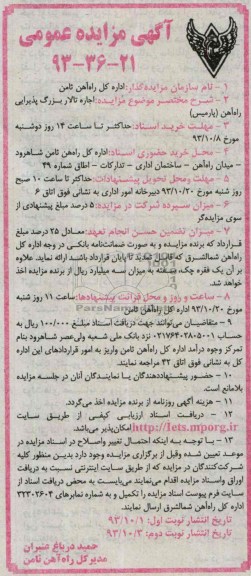 آگهی مزایده عمومی
۹۳-۳۶-۲۱
۱- نام سازمان مزایده‌گذار: اداره کل راه‌آهن ثامن
۲- شرح مختصر موضوع مزایده: اجاره تالار بزرگ پذیرایی
راه‌آهن (پارمیس)
۳- مهلت خرید اسناد: حداکثر تا ساعت ۱۴ روز دوشنبه
مورخ ۹۳/۱۰/۸
۴- محل خرید حضوری اسناد: اداره کل راه‌آهن ثامن شاهرود
- میدان راه‌آهن - ساختمان اداری - تدارکات - اطاق شماره ۴۹
۵- مهلت ومحل تحویل پیشنهادات: حداکثر تا ساعت ۱۰ صبح
روز شنبه مورخ ۹۳/۱۰/۲۰ دبیرخانه امور اداری به نشانی فوق اتاق ۶
۶- میزان سپرده شرکت در مزایده: ۵ درصد مبلغ پیشنهادی از
سوی مزایده‌گر
۷- میزان تضمین حسن انجام تعهد: معادل ۲۵ درصد مبلغ
قرارداد که برنده مزایده و به صورت ضمانت‌نامه بانکی در وجه اداره کل
راه‌آهن شمالشرق که قابل تمدید تا پایان قرارداد باشد ارائه نماید. علاوه
بر آن یک فقره چک سفته به میزان سه میلیارد ریال از برنده مزایده اخذ
خواهد شد.
۸- ساعت و روز و محل قرائت پیشنهادها: ساعت ۱۱ روز شنبه
مورخ ۹۳/۱۰/۲۰ اداره کل راه‌آهن ثامن
۹- متقاضیان می‌توانند جهت دریافت اسناد مبلغ ۱۰۰/۰۰۰ ریال به
حساب ۰۲۱۷۶۴۰۲۸۰۵۰۰۱ نزد بانک ملی شعبه ولی‌عصر شاهرود بنام
تمرکز وجوه درآمد اداره کل راه‌آهن ثامن واریز به امور قراردادهای این اداره
کل به نشانی فوق اتاق ۴۲ مراجعه نمایند.
۱۰- حضور پیشنهاددهندگان یا نمایندگان آنان در جلسه مزایده
بلامانع است.
۱۱- هزینه آگهی روزنامه از برنده مزایده اخذ می‌گردد.
۱۲- دریافت اسناد ارزیابی کیفی از طریق سایت
http://iets.mporg.ir امکان‌پذیر می‌باشد.
۱۳- با توجه به اینکه احتمال تغییر واصلاح در اسناد مزایده در
موعد تعیین شده وقبل از برگزاری مزایده وجود دارد بدین منظور کلیه
شرکت‌کنندگان در مزایده که از طریق سایت اینترنتی نسبت به دریافت
اوراق واسناد مزایده اقدام می‌نمایند می‌بایست به محض دریافت اسناد از
سایت فرم پیوست اسناد مزایده را تکمیل و به شماره نمابرهای ۳۲۲۰۲۶۰۴
اداره کل راه‌آهن شمالشرق ارسال نمایند.
تاریخ انتشار نوبت اول: ۹۳/۱۰/۱
تاریخ انتشار نوبت دوم: ۹۳/۱۰/۳
حمید درباغ عنبران
مدیر کل راه‌آهن ثامن